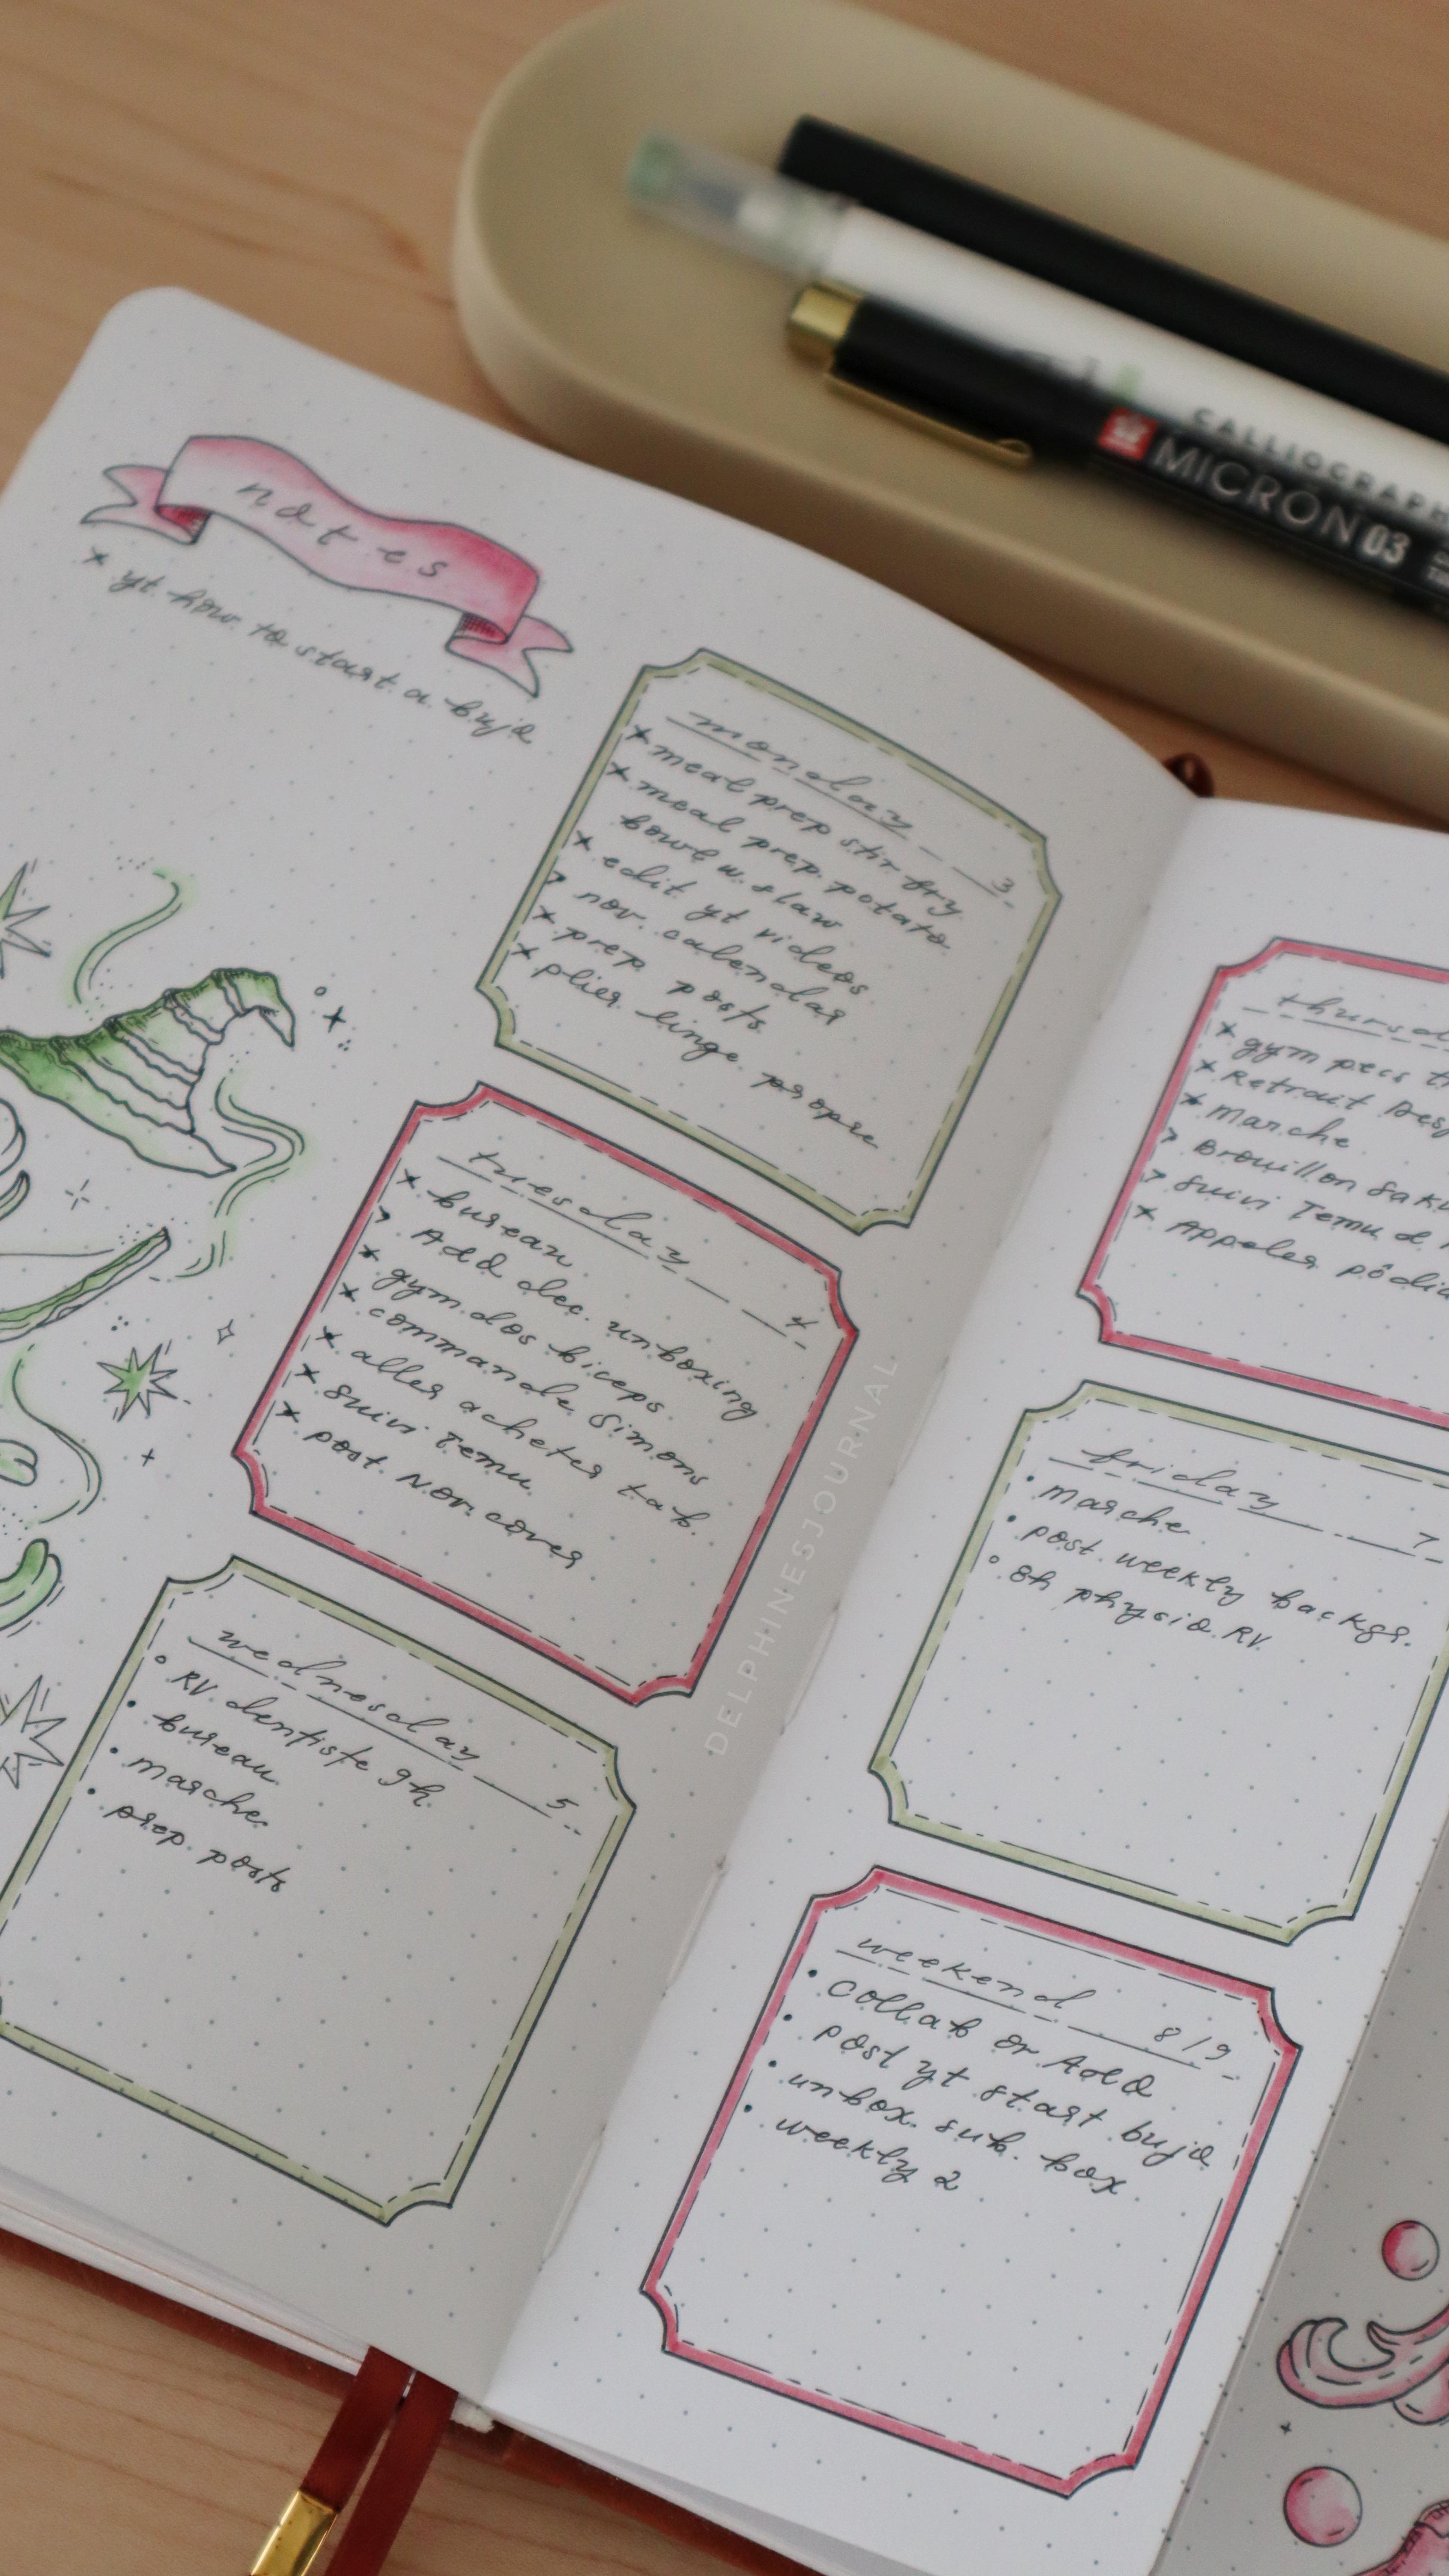 CALLIOGRAPH
MICRON 03
notes
× yt how to start a bujo
monday 3
× meal prep stir fry
× meal prep potato
bowl w. slaw
× edit yt videos
> nov. calendar
× prep posts
× plier linge propre
tuesday 4
× bureau
> Add dec. unboxing
× gym dos biceps
× commande Simons
× aller acheter tab.
× suivi Temu
× post Nov. cover
wednesday 5
° RV dentiste 9h
• bureau
• marche
• prep posts
DELPHINESJOURNAL
thursd
× gym pecs t
× Retrait Desj
× Marche
> Brouillon Saku
> Suivi Temu
× Appeler
friday 7
• marche
• post weekly backgr.
° 8h physio RV
weekend 8/9
• Collab or Add
• post yt start bujo
• unbox sub. box
• weekly 2